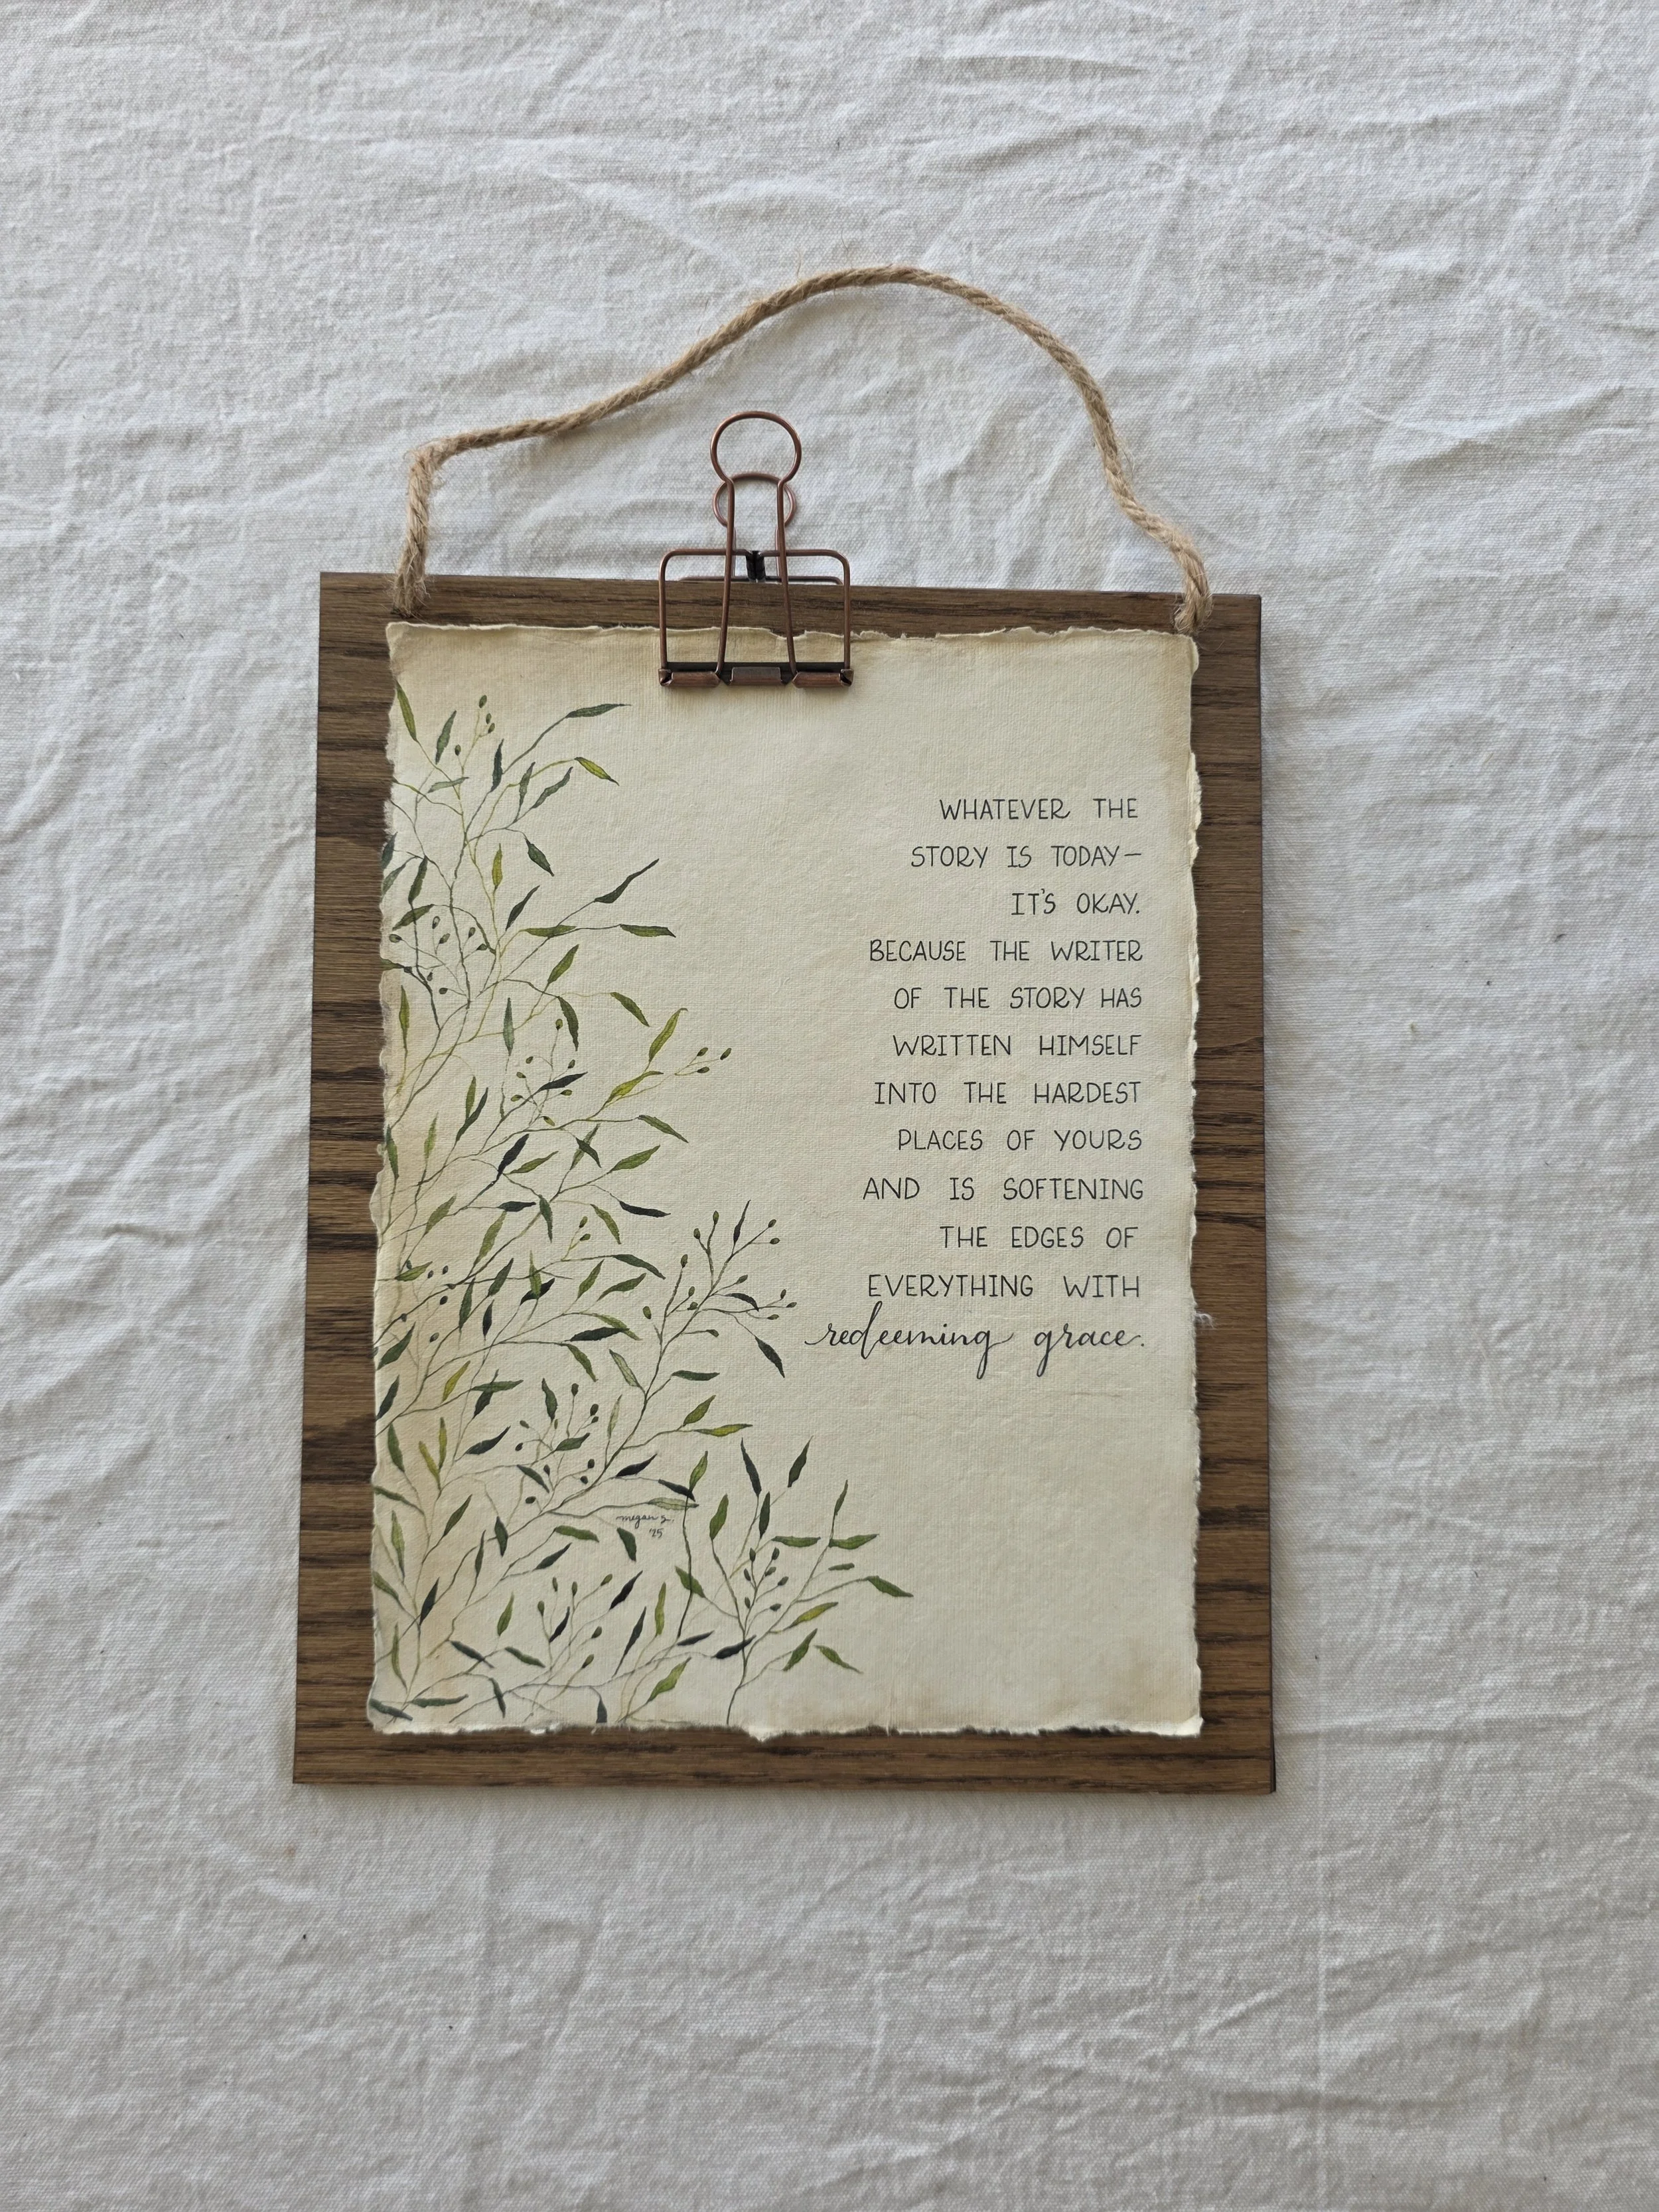 WHATEVER THE
STORY IS TODAY—
IT'S OKAY.
BECAUSE THE WRITER
OF THE STORY HAS
WRITTEN HIMSELF
INTO THE HARDEST
PLACES OF YOURS
AND IS SOFTENING
THE EDGES OF
EVERYTHING WITH
redeeming grace.
megan
'25